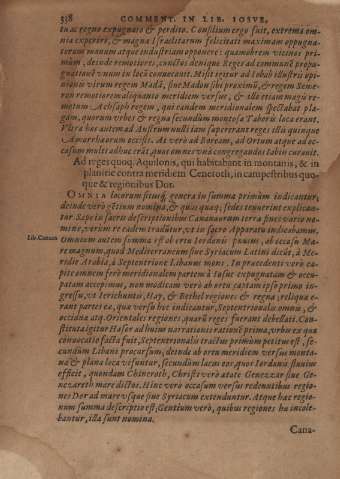 318 COMMENT. IN LIB. IOSVE,
tum ac regno expugnato & perdito. Consilium ergo fuit, extrema om-
nia experiri, & magna Israëlitarum felicitati maximam oppugna-
torum manum atque industriam opponere: quamobrem vicinos pri-
mùm, deinde remotiores, cunctos denique Reges ad communē propu-
gnationē vnum in locū conuocant. Misit igitur ad Iobab illustris opi-
nionis virum regem Madō, siue Madun sibi proximū, & regem Seme-
ron remotiorem aliquanto meridiem versus, & illo etiam magis re-
motum Achsaph regem, qui eandem meridionalem spectabat pla-
gam, quorum vrbes & regna secundùm montosa Taboris loca erant.
Vltra hos autem ad Austrum nulli iam superarant reges illis quinque
Amorrhaeorum occisis. At vero ad Boream, ad Ortum atque ad oc-
casum multi adhuc erāt, quos omnes vnà congregandos Iabin curauit.
Ad reges quoq; Aquilonis, qui habitabant in montanis, & in
planitie contra meridiem Ceneroth, in campestribus quo-
que & regionibus Dor.
OMNIA locorum situsq́; genera in summa primùm indicantur,
deinde verò gētium nomina, & quas quaeq; sedes tenuerint explican-
tur. Sape in sacris descriptionibus Cananaeorum terra fines vario no-
mine, verùm re eadem traduntur, vt in sacro Apparatu indicauimus.
Omnium autem summa est ab ortu Iordanis flumen, ab occasu Ma-
re magnum quod Mediterraneum siue Syriacum Latini dicūt, à Me-
ridie Arabia, à Septentrione Libanus mons. In precedenti verò ca-
pite omnem ferè meridionalem partem à Iosue expugnatam & occu-
patam accepimus, non modicam verò ab ortu captam ipso primo in-
gressu, vt Ierichuntis, Hay, & Bethel regiones & regna; reliqua e-
rant partes ea, quae versu hoc indicantur, Septentrionalis omnis, &
occidua atq; Orientales regiones, quarū reges fuerant debellati. Con-
stituta igitur Hasor ad huius narrationis rationē prima, vrbs ex qua
conuocatio facta fuit, Septentrionalis tractus primùm petitus est, se-
cundùm Libani procursum, deinde ab ortu meridiem versus monta-
na & plana loca visuntur, secundùm lacus eos quos Iordanis fluuius
efficit, quondam Chineroth, Christi verò aetate Genezzar siue Ge-
nezareth mare dictos. Hinc verò occasum versus redeuntibus regio-
nes Dor ad mare vsque siue Syriacum extenduntur. Atque haec regio-
num summa descriptio est; Gentium verò, quibus regiones hae incole-
bantur, ista sunt nomina.
Lib. Canaan
Cana-